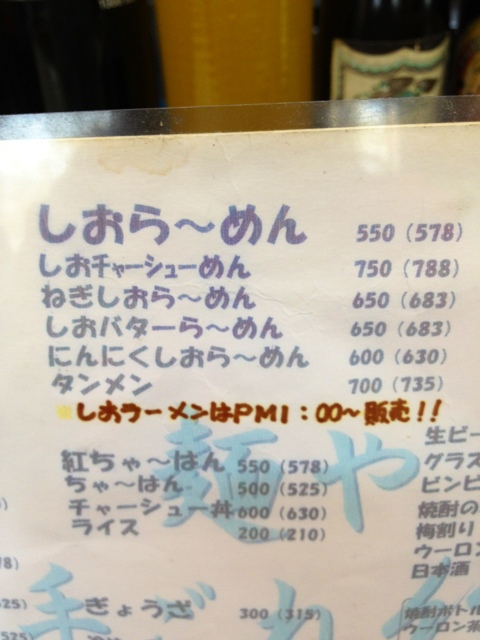 しおら〜めん 550（578）
しおチャーシューめん 750（788）
ねぎしおら〜めん 650（683）
しおバターら〜めん 650（683）
にんにくしおら〜めん 600（630）
タンメン 700（735）
しおラーメンはPM1：00〜販売！！
麺や
紅ちゃ〜はん 550（578）
ちゃ〜はん 500（525）
チャーシュー丼 600（630）
ライス 200（210）
ぎょうざ 300（315）
生ビー
グラス
ビンビ
焼酎の
梅割り
ウーロン
日本酒
焼酎ボトル
ウーロン茶